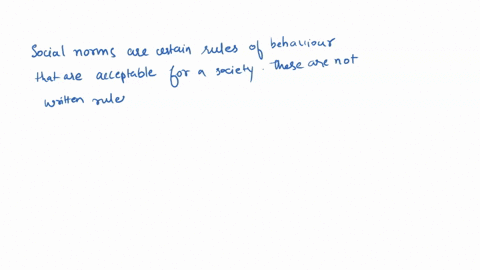 Social norms are certain rules of behaviour
that are acceptable for a society. These are not
written rule